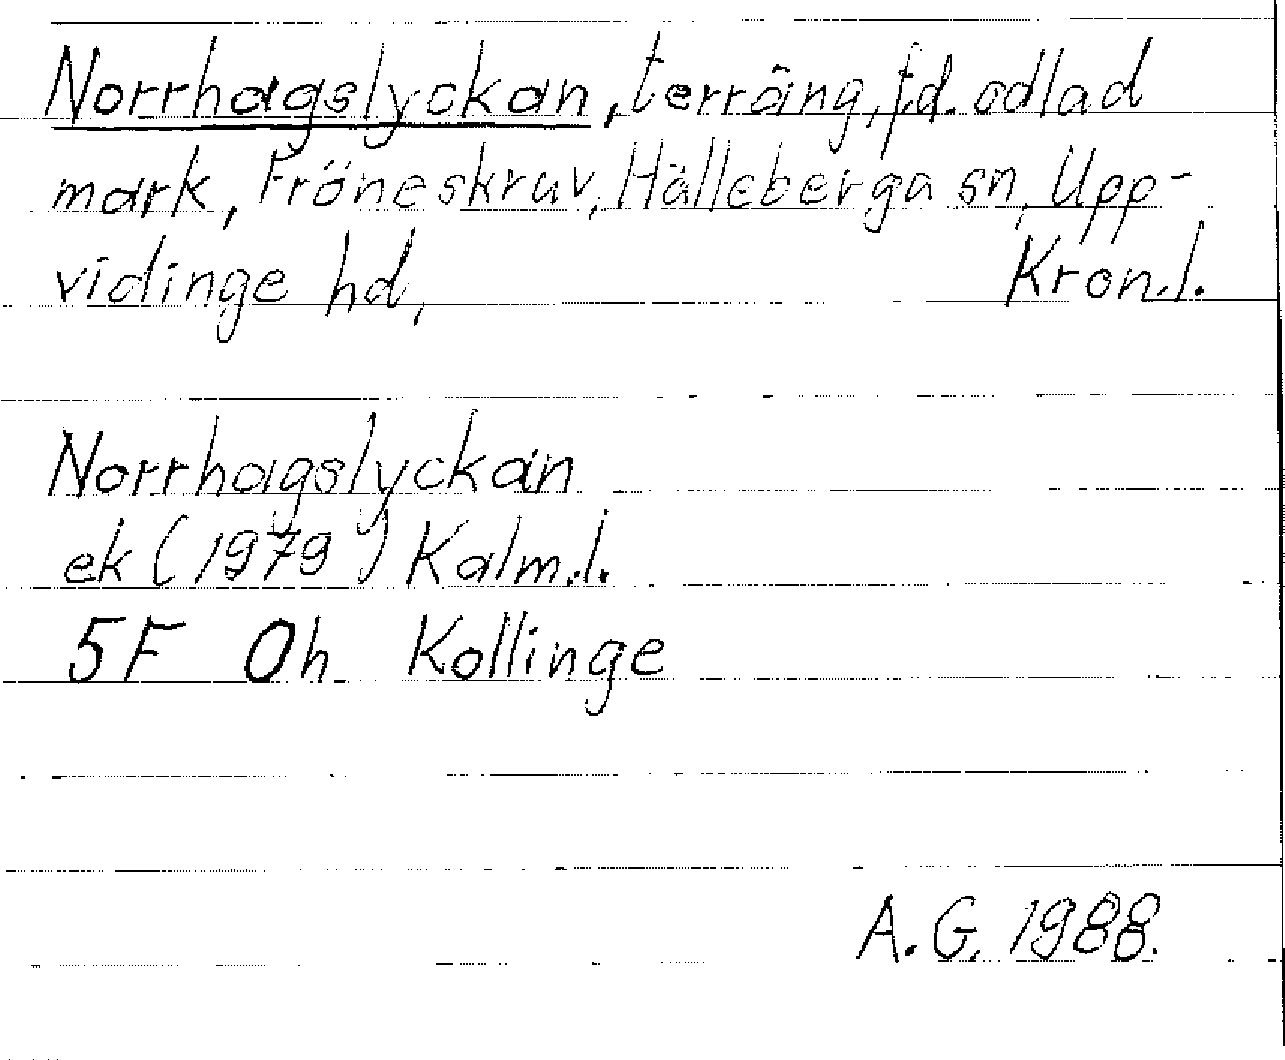 Norrhagslyckan, terräng, f.d. odlad
mark, Fröneskruv, Hälleberga sn, Upp-
vidinge hd, Kron.l.
Norrhagslyckan
ek (1979) Kalm.l.
5F 0h Kollinge
A.G. 1988.